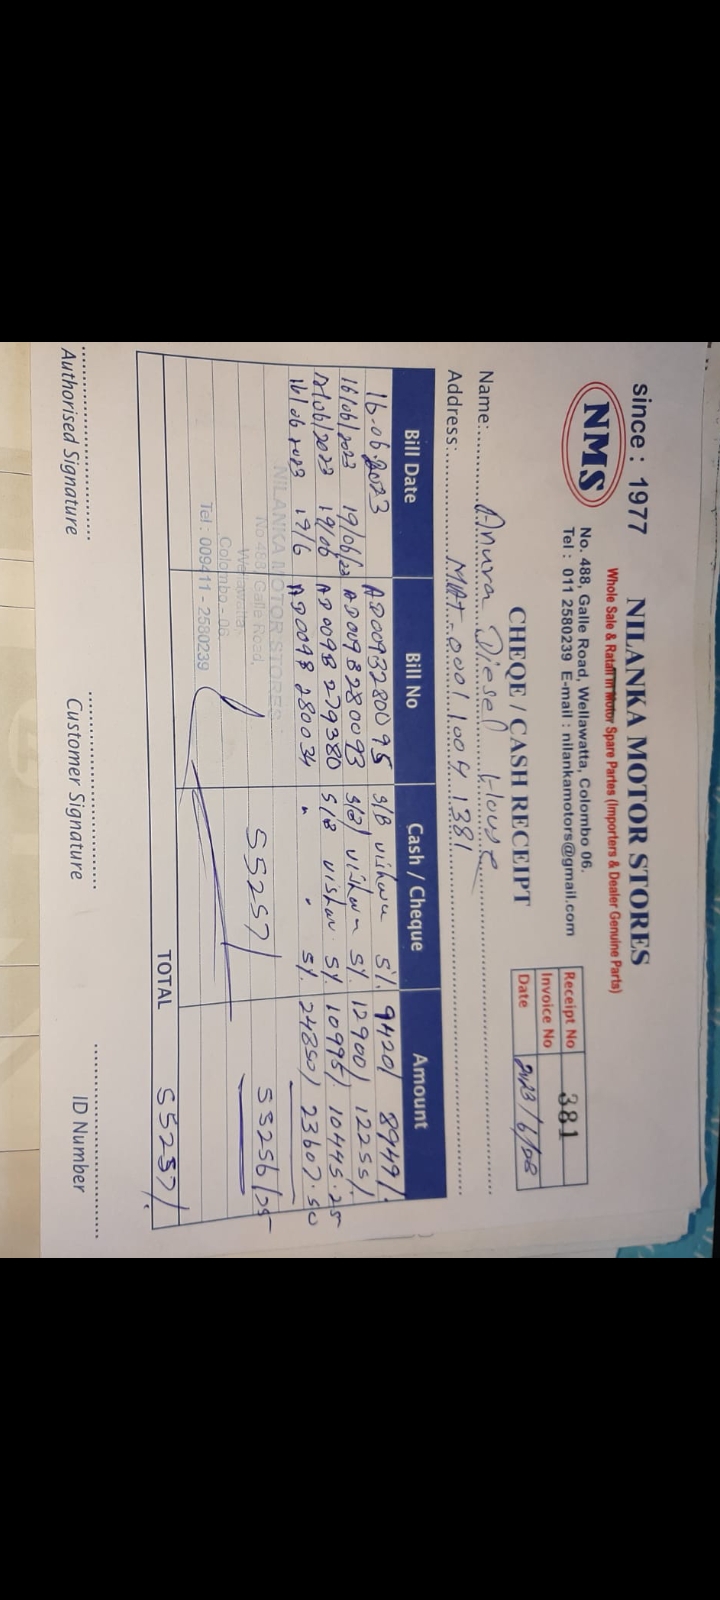 since : 1977
NILANKA MOTOR STORES
Whole Sale & Ratail in Motor Spare Partes (Importers & Dealer Genuine Parts)
NMS
No. 488, Galle Road, Wellawatta, Colombo 06.
Tel : 011 2580239 E-mail : nilankamotors@gmail.com
CHEQE / CASH RECEIPT
Receipt No 381
Invoice No
Date 2023/6/28
Name: Anura Diesel House
Address: MAT-0001 1004 1381
Bill Date Bill No Cash / Cheque Amount
16-06-2023 AD00932800 95 S/B 5%. 9420/ 8949/.
16/06/2023 19/06/23 AD009B280093 S/B/ 5%. 12900/ 12255/
19/06 AD009B 279380 S/B 5%. 10995/. 10445.25
16/06 2023 19/6 AD009B 280034 " " 5%. 24850/ 23607.50
NILANKA MOTOR STORES
No 488, Galle Road,
Wellawatta,
Colombo - 06.
Tel : 009411 - 2580239
55257/
55256/75
TOTAL 55257/.
Authorised Signature Customer Signature ID Number